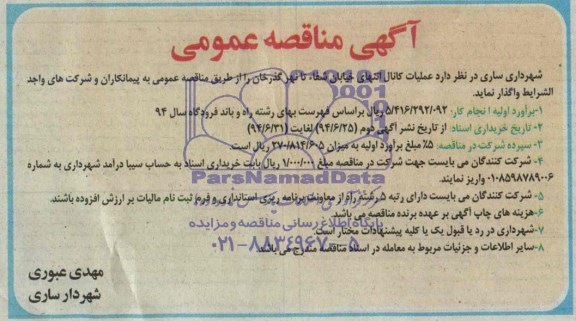 آگهی مناقصه عمومی
شهرداری ساری در نظر دارد عملیات کانال انتهای خیابان شفاء تا نهر گذرخان را از طریق مناقصه عمومی به پیمانکاران و شرکت های واجد
الشرایط واگذار نماید.
۱-برآورد اولیه انجام کار: ۵/۴۱۶/۲۹۲/۰۹۲ ریال براساس فهرست بهای رشته راه و باند فرودگاه سال ۹۴
۲- تاریخ خریداری اسناد: از تاریخ نشر آگهی دوم (۹۴/۶/۲۵) لغایت (۹۴/۶/۳۱)
۳- سپرده شرکت در مناقصه: ۵٪ مبلغ برآورد اولیه به میزان ۲۷۰/۸۱۴/۶۰۵ ریال است.
۴- شرکت کنندگان می بایست جهت شرکت در مناقصه مبلغ ۱/۰۰۰/۰۰۰ ریال بابت خریداری اسناد به حساب سیبا درآمد شهرداری به شماره
۰۱۰۸۵۹۸۷۸۹۰۰۶ واریز نمایند.
۵- شرکت کنندگان می بایست دارای رتبه ۵ رشته راه از معاونت برنامه ریزی استانداری و فرم ثبت نام مالیات بر ارزش افزوده باشند.
۶-هزینه های چاپ آگهی بر عهده برنده مناقصه می باشد.
۷-شهرداری در رد یا قبول یک یا کلیه پیشنهادات مختار است.
۸-سایر اطلاعات و جزئیات مربوط به معامله در اسناد مناقصه مندرج می باشد.
مهدی عبوری
شهردار ساری
ParsNamadData
پایگاه اطلاع رسانی مناقصه و مزایده
۰۲۱-۸۸۳۴۹۶۷۰-۵